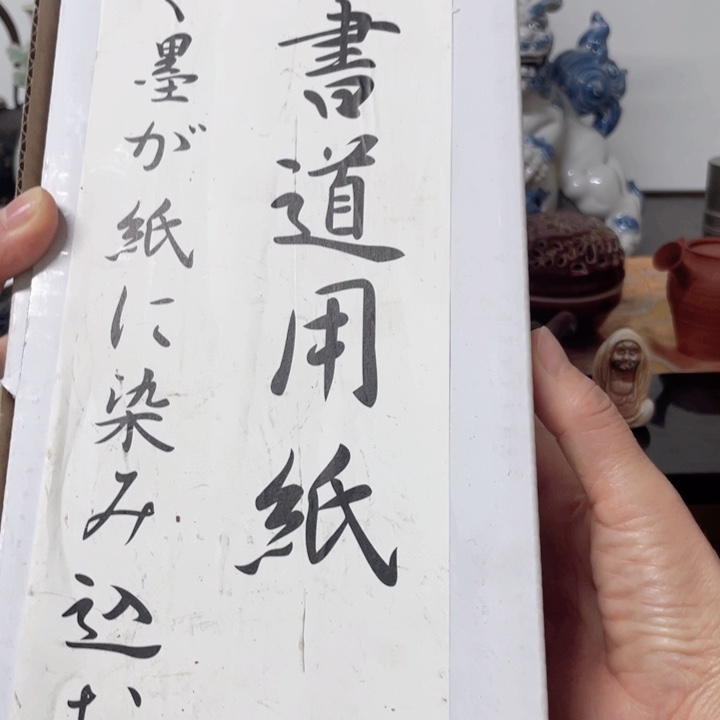 書道用紙
く墨が紙に染み込む